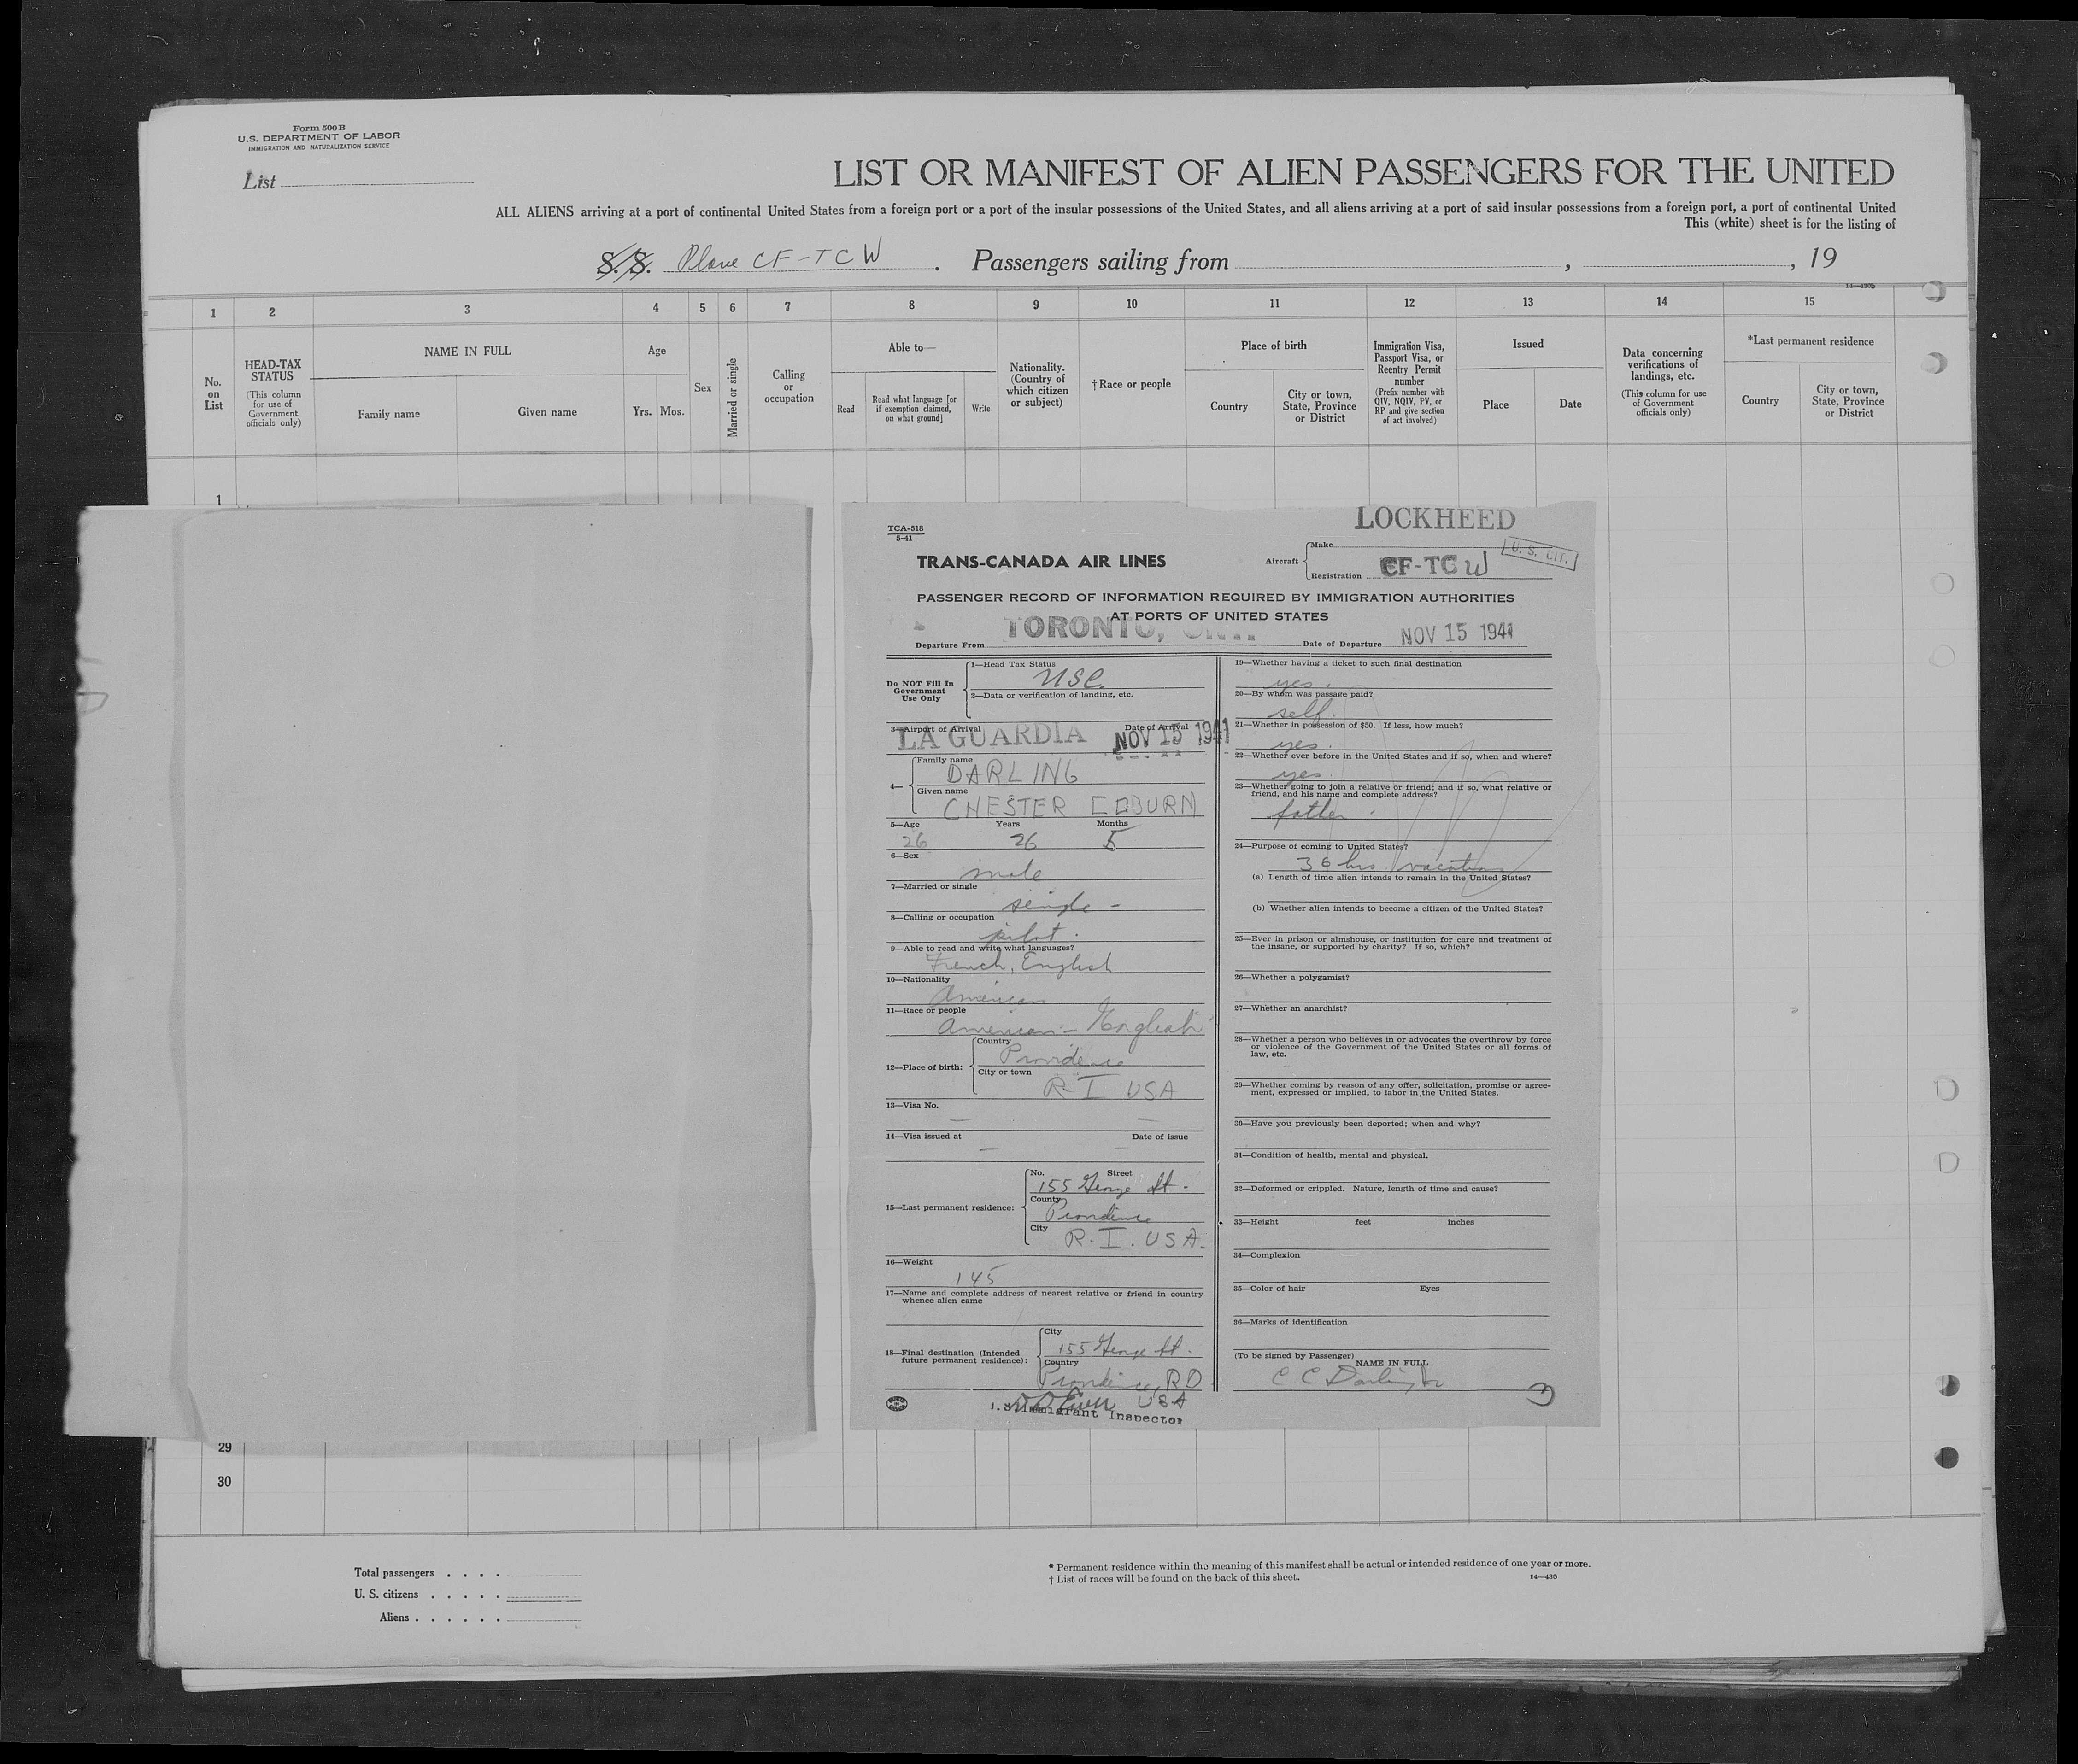 Form 500 B
U.S. DEPARTMENT OF LABOR
IMMIGRATION AND NATURALIZATION SERVICE
List
LIST OR MANIFEST OF ALIEN PASSENGERS FOR THE UNITED
ALL ALIENS arriving at a port of continental United States from a foreign port or a port of the insular possessions of the United States, and all aliens arriving at a port of said insular possessions from a foreign port, a port of continental United
This (white) sheet is for the listing of
S.S. Plane CF-TCW. Passengers sailing from , , 19
1 2 3 4 5 6 7 8 9 10 11 12 13 14 15
No. on List
HEAD-TAX STATUS
(This column for use of Government officials only)
NAME IN FULL
Family name
Given name
Age
Yrs. Mos.
Sex
Married or single
Calling or occupation
Able to—
Read
Read what language [or if exemption claimed, on what ground]
Write
Nationality. (Country of which citizen or subject)
†Race or people
Place of birth
Country
City or town, State, Province or District
Immigration Visa, Passport Visa, or Reentry Permit number
(Prefix number with QIV, NQIV, PV, or RP and give section of act involved)
Issued
Place
Date
Data concerning verifications of landings, etc.
(This column for use of Government officials only)
*Last permanent residence
Country
City or town, State, Province or District
1
TCA-518
5-41
LOCKHEED
TRANS-CANADA AIR LINES
Aircraft
Make
Registration CF-TCW
U. S. CIT.
PASSENGER RECORD OF INFORMATION REQUIRED BY IMMIGRATION AUTHORITIES
AT PORTS OF UNITED STATES
Departure From TORONTO, ONT.
Date of Departure NOV 15 1941
Do NOT Fill In
Government
Use Only
1—Head Tax Status
USC
2—Data or verification of landing, etc.
3—Airport of Arrival
LA GUARDIA
Date of Arrival
NOV 15 1941
4—
Family name
DARLING
Given name
CHESTER COBURN
5—Age Years Months
26 26 5
6—Sex
male
7—Married or single
single -
8—Calling or occupation
pilot.
9—Able to read and write what languages?
French, English
10—Nationality
American
11—Race or people
American - English
12—Place of birth:
Country
Providence
City or town
R I USA
13—Visa No.
—
14—Visa issued at Date of issue
—
15—Last permanent residence:
No. Street
155 George St.
County
Providence
City
R. I. USA.
16—Weight
145
17—Name and complete address of nearest relative or friend in country
whence alien came
18—Final destination (Intended
future permanent residence):
City
155 George St.
Country
Providence, RD
USA
Immigrant Inspector
19—Whether having a ticket to such final destination
yes.
20—By whom was passage paid?
self.
21—Whether in possession of $50. If less, how much?
yes.
22—Whether ever before in the United States and if so, when and where?
yes.
23—Whether going to join a relative or friend; and if so, what relative or
friend, and his name and complete address?
father.
24—Purpose of coming to United States?
36 hrs vacation
(a) Length of time alien intends to remain in the United States?
(b) Whether alien intends to become a citizen of the United States?
25—Ever in prison or almshouse, or institution for care and treatment of
the insane, or supported by charity? If so, which?
26—Whether a polygamist?
27—Whether an anarchist?
28—Whether a person who believes in or advocates the overthrow by force
or violence of the Government of the United States or all forms of
law, etc.
29—Whether coming by reason of any offer, solicitation, promise or agree-
ment, expressed or implied, to labor in the United States.
30—Have you previously been deported; when and why?
31—Condition of health, mental and physical.
32—Deformed or crippled. Nature, length of time and cause?
33—Height feet inches
34—Complexion
35—Color of hair Eyes
36—Marks of identification
(To be signed by Passenger)
NAME IN FULL
3
29
30
Total passengers . . . .
U. S. citizens . . . . .
Aliens . . . . . .
* Permanent residence within the meaning of this manifest shall be actual or intended residence of one year or more.
† List of races will be found on the back of this sheet.
14—430